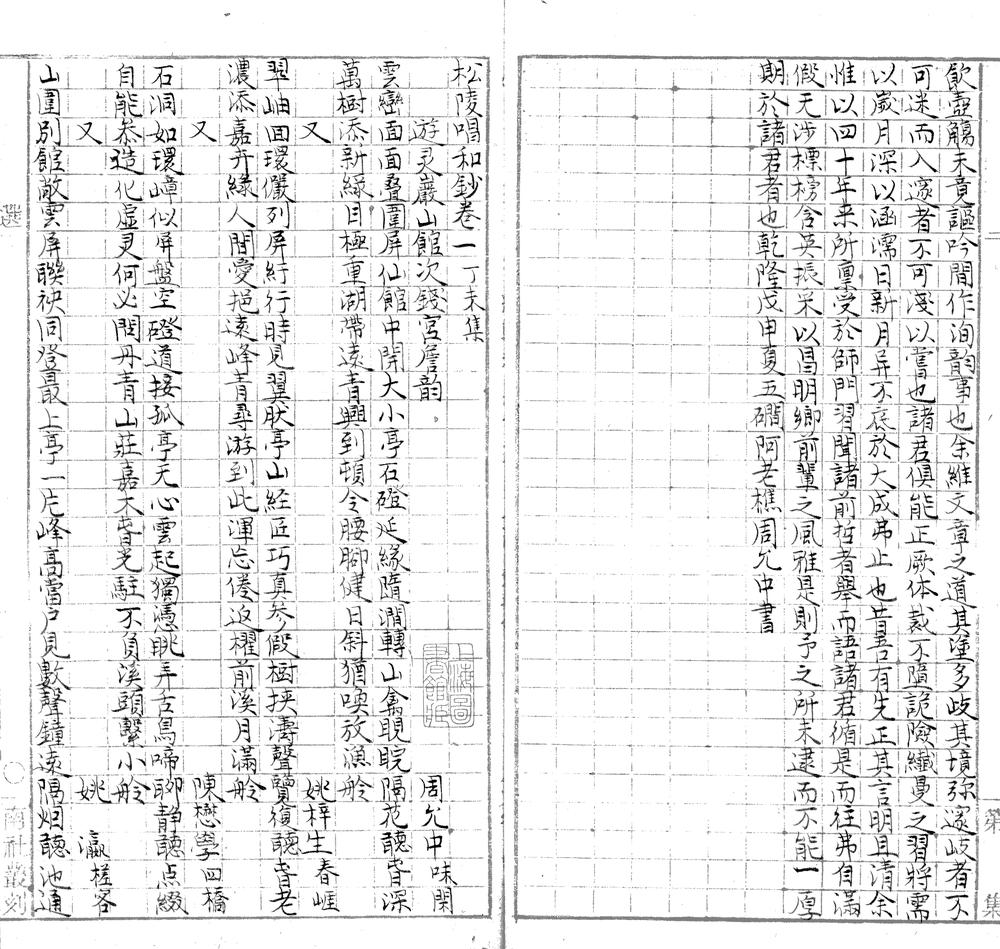 飲壺觴未竟謳吟間作洵韵事也余維文章之道其塗多歧其境弥邃歧者不
可迷而入邃者不可淺以嘗也諸君俱能正厥体裁不墮詭險纖曼之習將需
以歲月深以涵濡日新月异不底於大成弗止也昔吾有先正其言明且清余
惟以四十年来所禀受於師門習聞諸前哲者舉而語諸君循是而往弗自滿
假天涉標榜含英振采以昌明鄉前輩之風雅是則予之所未逮而不能一厚
期於諸君者也乾隆戊申夏五磵阿老樵周允中書
松陵唱和鈔卷一 丁未集
游灵巖山館次錢宮詹韵。
周允中味閑
雲巒面面叠圍屏仙館中開大小亭石磴延緣隋澗轉山禽睍睆隔花聽昏深
萬樹添新緑目極重湖帶遠青興到頓令腰腳健日斜猶喚放漁舲
又
姚梓生春崕
翠岫回環儼列屏紆行時見翼肰亭山経匠巧真参假樹挟濤聲覽復聽昏老
濃添嘉卉緑人閒愛挹遠峰青尋游到此渾忘倦返櫂前溪月滿舲
又
陳懋學四橋
石洞如環嶂似屏盤空磴道接孤亭无心雲起獨憑眺弄舌鳥啼聊静聽点綴
自能叅造化虚灵何必問丹青山莊嘉木昏光駐不負溪頭繫小舲
又
姚瀛槎客
山圍別館敞雲屏聯袂同登最上亭一片峰高當户見數聲鐘遠隔烟聽池通
選
南社叢刻
第
集
上海圖書館藏